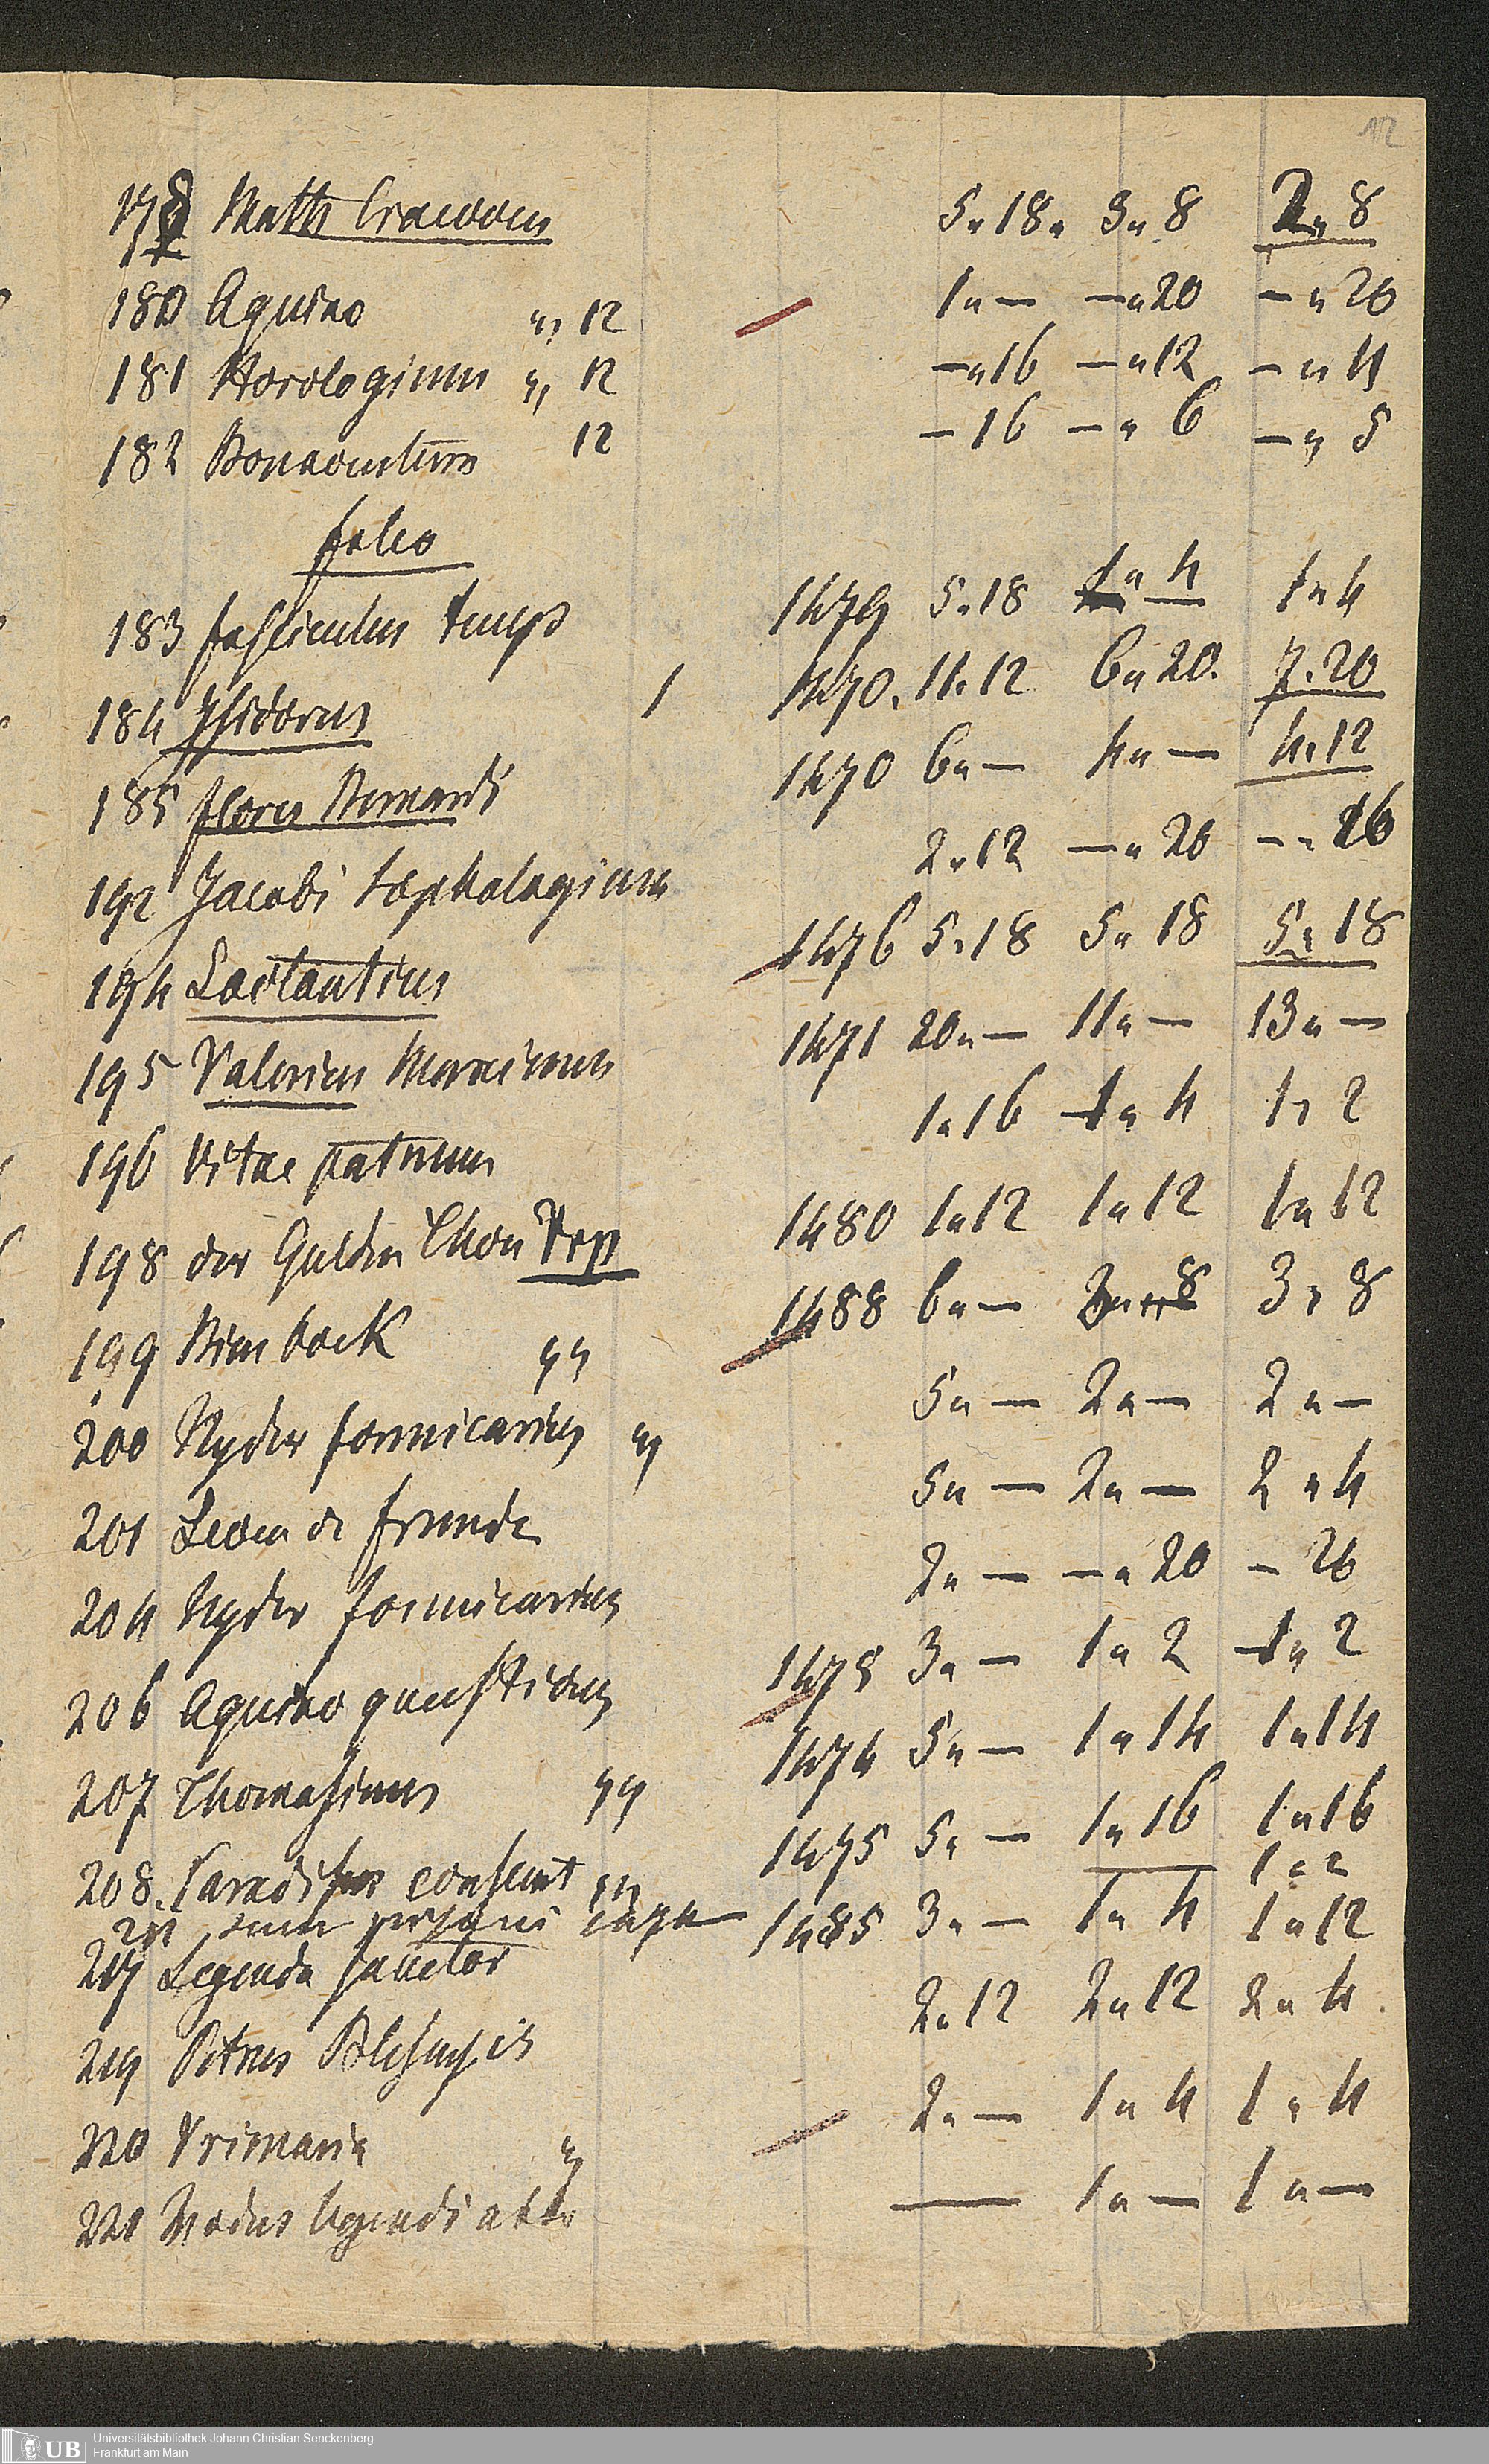 12
178 Matth Cracoven 5„18„ 3„8 2„8
180 Aquino „ 12 1„— —„20 —„20
181 Horologium „ 12 —„16 —„12 —„4
182 Bonaventura 12 —16 —„6 —„5
folio
183 fasciculus temp 1479 5.18 1„4 1„4
184 Isidorus 1 1470. 11.12 6„20. 7.20
185 flores Bernardi 1470 6„— 4„— 4.12
192 Jacobi Sophologium 2„12 —„20 —„16
194 Lactantius 1476 5.18 5„18 5„18
195 Valerius Maximus 1471 20„— 11„— 13„—
196 Vitae patrum 1„16 1„4 1„2
198 der Gulden Thron 1480 1„12 1„12 1„12
199 1488 6„— 3„8 3„8
200 Nyder formicarius „ 5„— 2„— 2„—
201 5„— 2„— 2„4
204 Nyder formicarius 2„— —„20 —20
206 Aquino quaestiones 1478 3„— 1„2 1„2
207 Thomasinus „„ 1474 5„— 1„14 1„14
208. Paradisus 1475 5„— 1„16 1„16
1„2
217 Legenda sanctor 1485 3„— 1„4 1„12
219 Petrus Blesensis 2„12 2„12 2„4.
220 Vrimaria „ 2„— 1„4 1„4
221 Modus legendi abbr — 1„— 1„—
UB Universitätsbibliothek Johann Christian Senckenberg
Frankfurt am Main